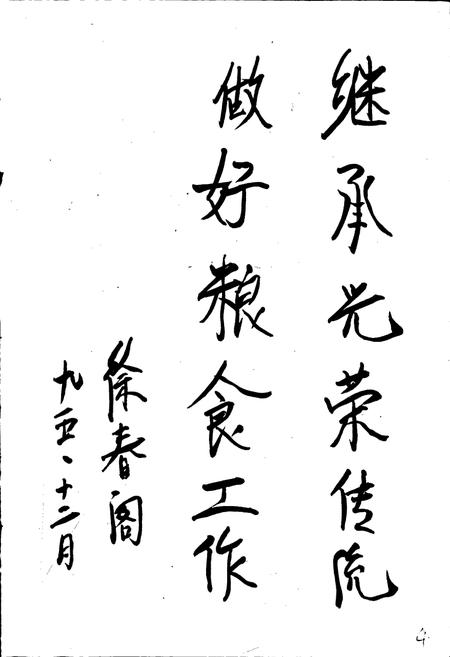 继承光荣传统
做好粮食工作
徐春阁
九五、十二月
4